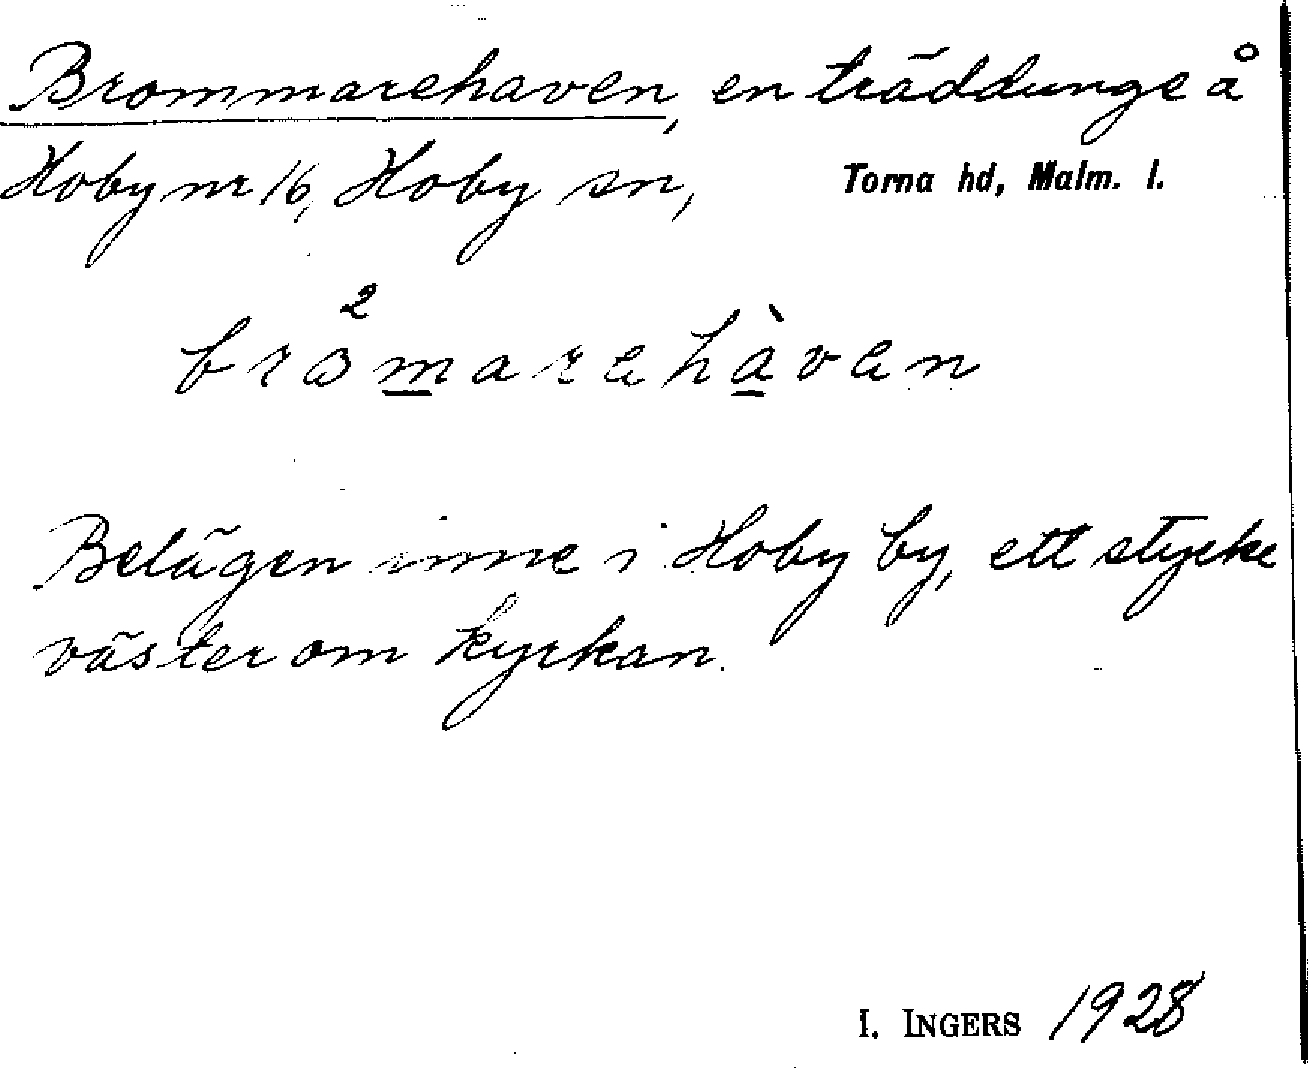 Brommarehaven, en träddunge å
Hoby nr 16, Hoby sn, Torna hd, Malm. l.
brò²marehàven
Belägen inne i Hoby by, ett stycke
väster om kyrkan.
I. INGERS 1928